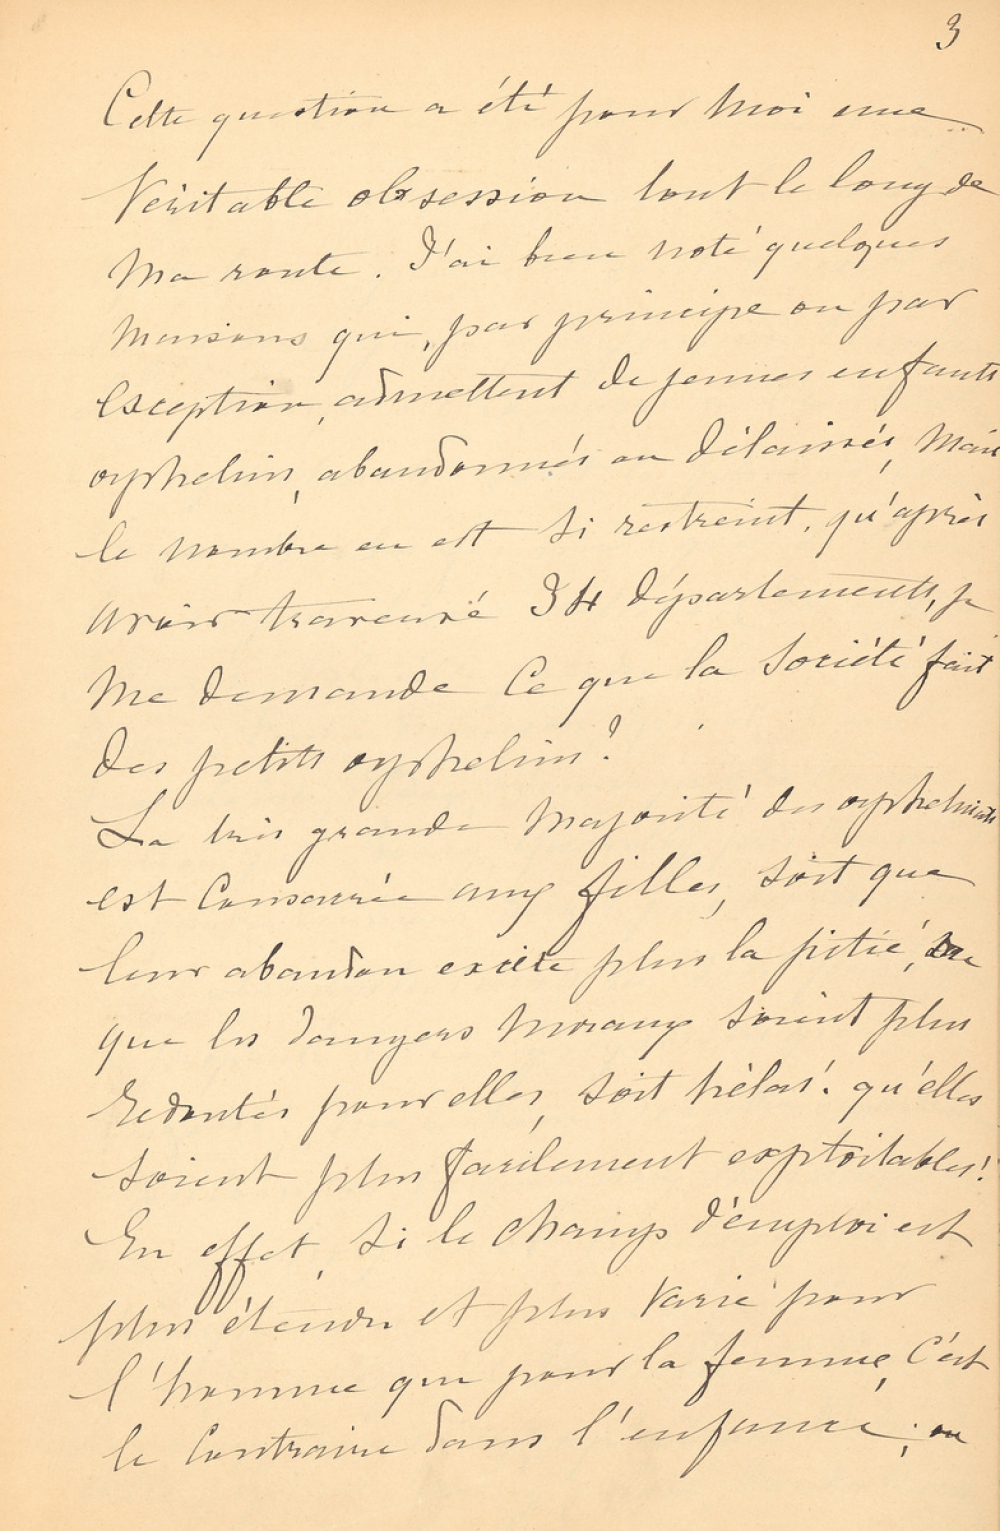 3
Cette question a été pour moi une
Véritable obsession tout le long de
Ma route. J'ai bien noté quelques
Maisons qui, par principe ou par
Exception, admettent de jeunes enfants
orphelins, abandonnés ou délaissés, Mais
le nombre en est si restreint, qu'après
avoir traversé 34 départements, je
Me demande Ce que la Société fait
des petits orphelins?
La très grande Majorité des orphelinats
est Consacrée aux filles, soit que
leur abandon excite plus la pitié,
que les dangers Moraux soient plus
redoutés pour elles, soit hélas! qu'elles
soient plus facilement exploitables!
En effet, si le Champ d'emploi est
plus étendu et plus Varié pour
l'homme que pour la femme, C'est
le Contraire dans l'enfance; ou